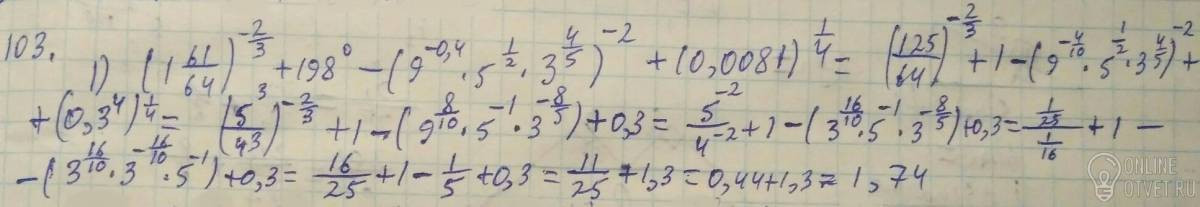 103.
1) (1 61/64)^(-2/3) + 198^0 - (9^(-0,4) · 5^(1/2) · 3^(4/5))^(-2) + (0,0081)^(1/4) = (125/64)^(-2/3) + 1 - (9^(-4/10) · 5^(1/2) · 3^(4/5))^(-2) +
+ (0,3^4)^(1/4) = (5^3/4^3)^(-2/3) + 1 - (9^(8/10) · 5^(-1) · 3^(-8/5)) + 0,3 = 5^(-2)/4^(-2) + 1 - (3^(16/10) · 5^(-1) · 3^(-8/5)) + 0,3 = (1/25)/(1/16) + 1 -
- (3^(16/10) · 3^(-16/10) · 5^(-1)) + 0,3 = 16/25 + 1 - 1/5 + 0,3 = 11/25 + 1,3 = 0,44 + 1,3 = 1,74
ONLINE
OTVET.RU